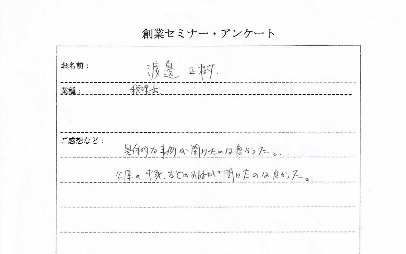 創業セミナー・アンケート
お名前：渡邊 正樹.
業種：税理士
ご感想など：
具体的な事例が聞けたのは良かった。
公庫の中家さんのお話が聞けたのは良かった。